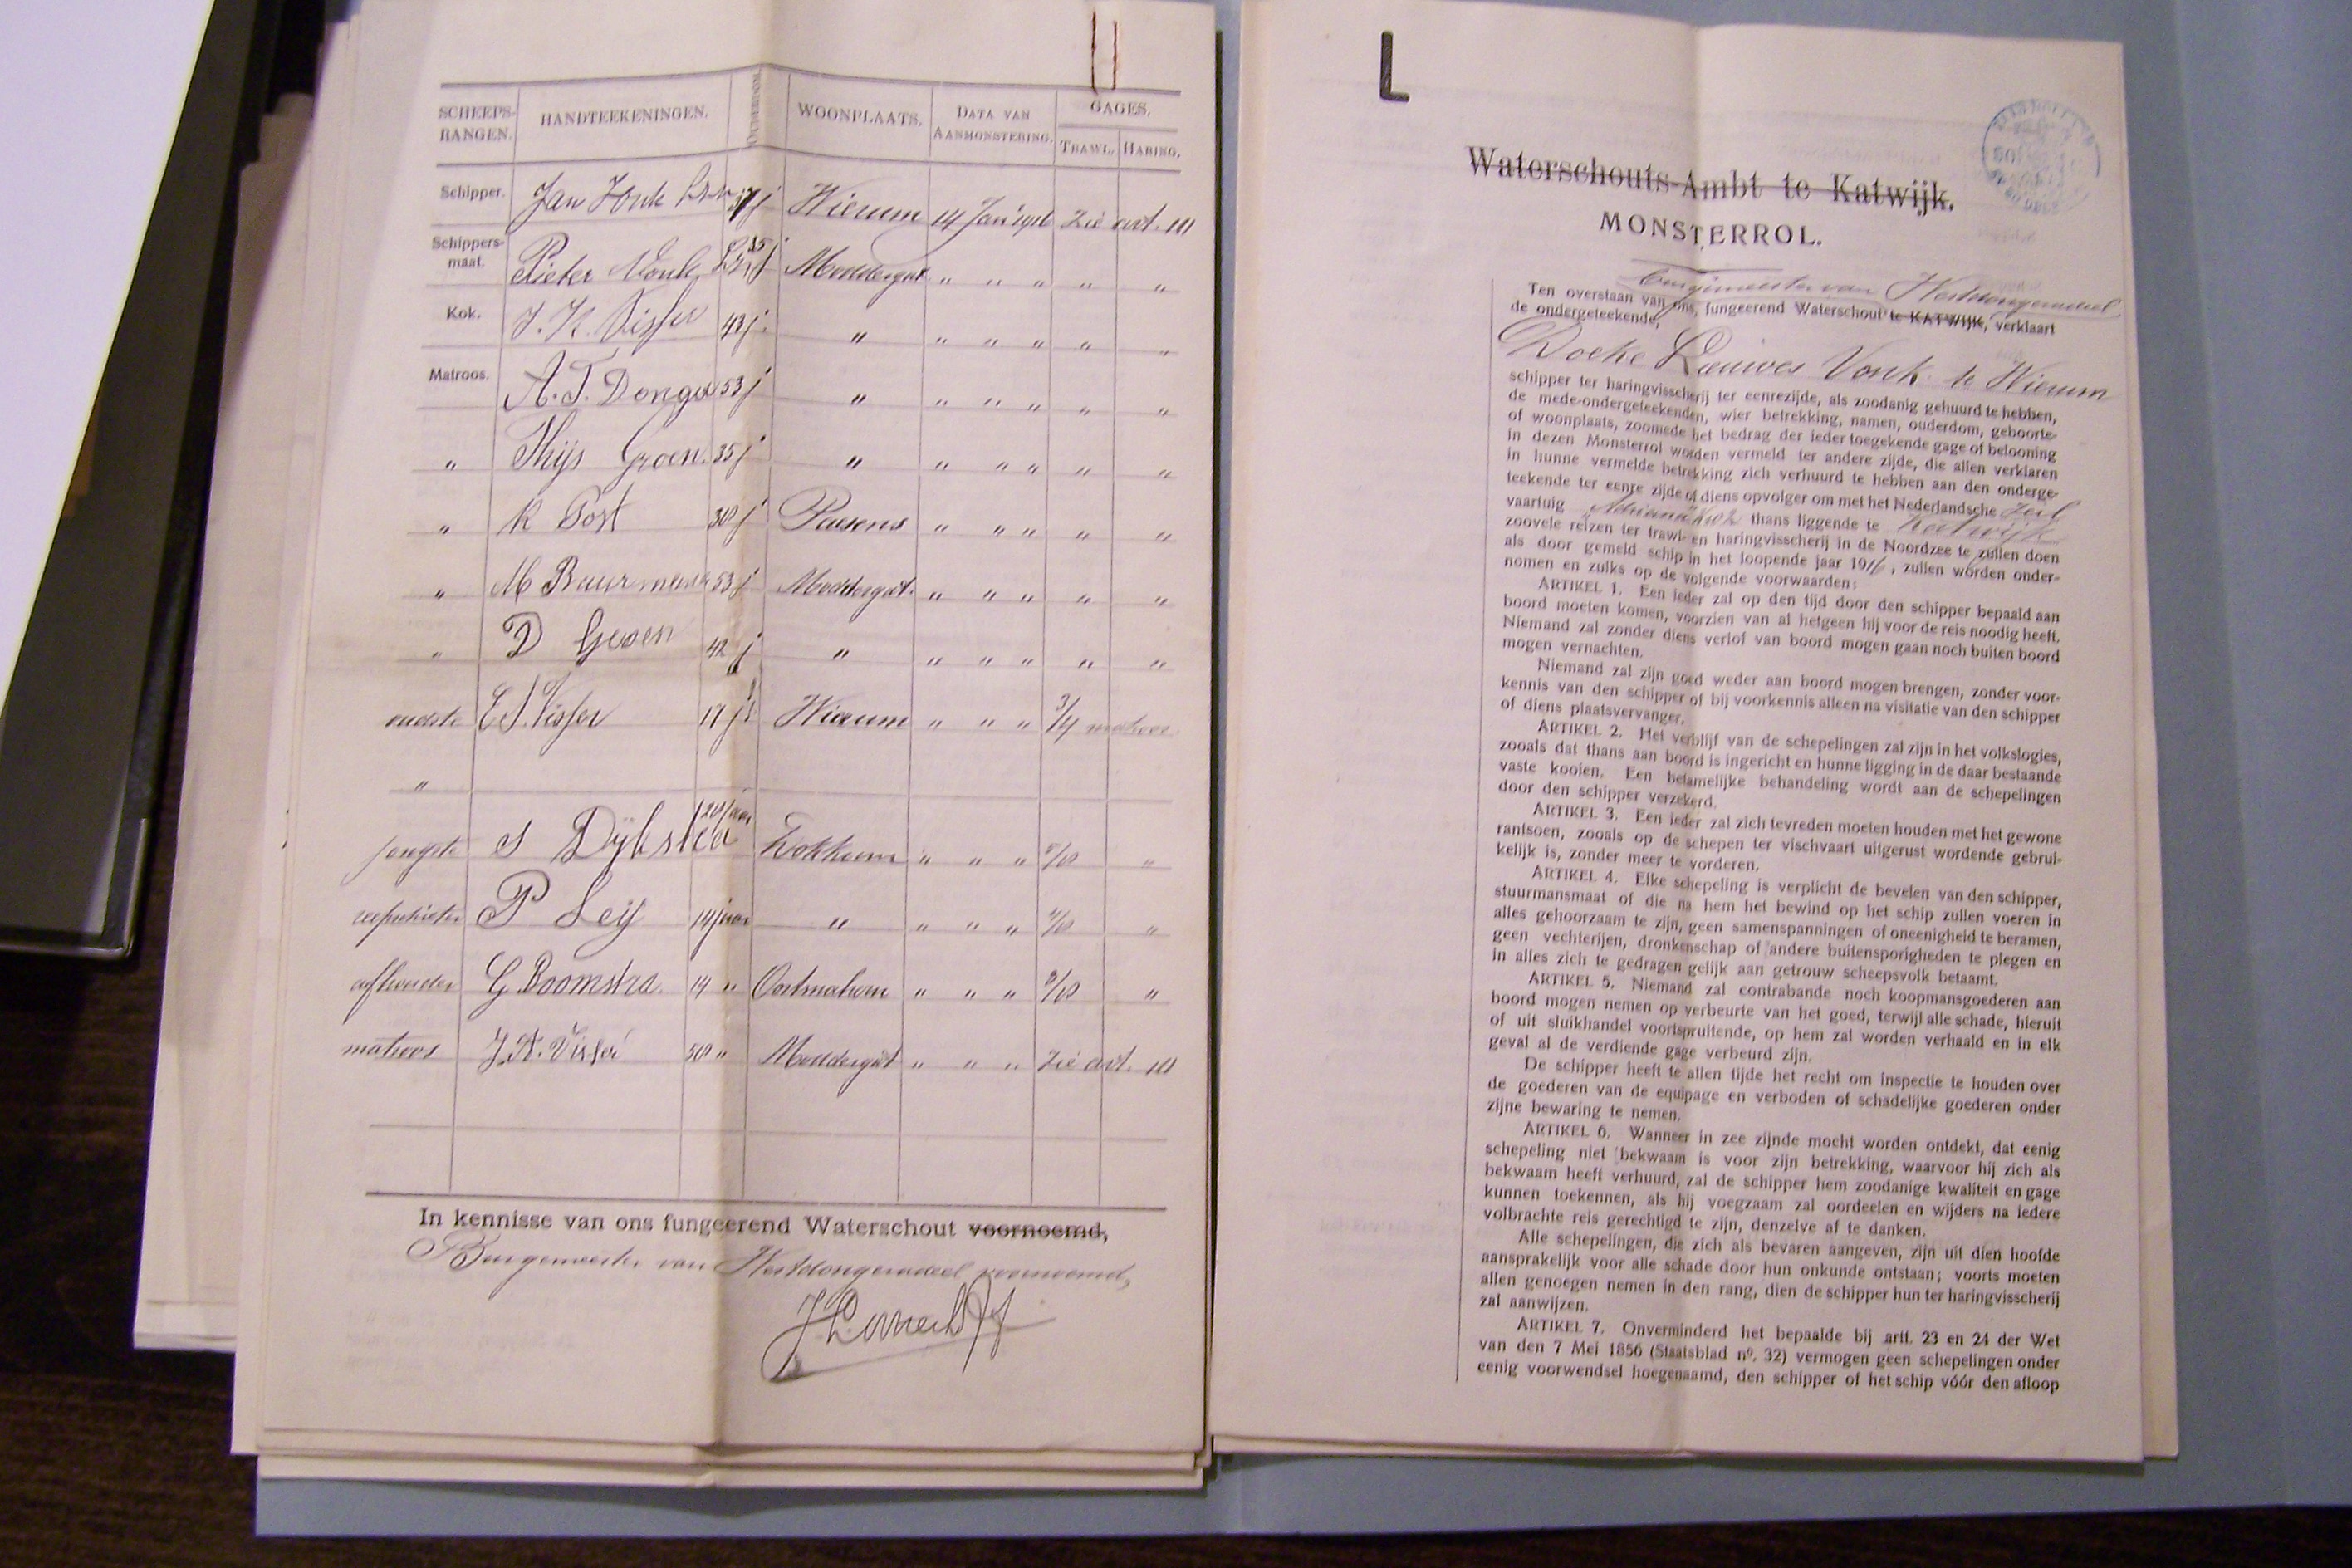 SCHEEPS-RANGEN. HANDTEEKENINGEN. OUDERDOM. WOONPLAATS. DATA VAN AANMONSTERING. GAGES.
TRAWL. HARING.
Schipper. Jan Vonk 37 j Wierum 14 Jan 1916 Zie art. 10
Schippers-maat. Pieter Vonk 35 j Moddergat " " " " "
Kok. J. K. Visser 43 j. " " " " " "
Matroos. A. T. Donga 53 j " " " " " "
" Thijs Groen. 35 j " " " " " "
" K Post 30 j Paesens " " " " "
" M Buurmans 53 j Moddergat. " " " " "
" D Groen 42 j " " " " " "
oudste E S. Visser 17 j Wierum " " " 3/4 matroos
"
jongste S Dijkstra 20 jaar Dokkum " " " 5/10 "
reepschieter P Leij 14 jaar " " " " 4/10 "
afhouder G Boomstra 14 " Oostmahorn " " " 3/10 "
matroos J. A. Visser 50 " Moddergat " " " Zie art. 10
In kennisse van ons fungeerend Waterschout voornoemd,
Burgemeester van Westdongeradeel voornoemd,
L
Waterschouts-Ambt te Katwijk.
MONSTERROL.
burgemeester van Westdongeradeel,
Ten overstaan van ons, fungeerend Waterschout te KATWIJK, verklaart
de ondergeteekende,
Doeke Leuwes Vonk te Wierum
schipper ter haringvisscherij ter eenrezijde, als zoodanig gehuurd te hebben,
de mede-ondergeteekenden, wier betrekking, namen, ouderdom, geboorte-
of woonplaats, zoomede het bedrag der ieder toegekende gage of belooning
in dezen Monsterrol worden vermeld ter andere zijde, die allen verklaren
in hunne vermelde betrekking zich verhuurd te hebben aan den onderge-
teekende ter eenre zijde of diens opvolger om met het Nederlandsche zeil
vaartuig "Adriana" KW 2 thans liggende te Katwijk
zoovele reizen ter trawl- en haringvisscherij in de Noordzee te zullen doen
als door gemeld schip in het loopende jaar 1916, zullen worden onder-
nomen en zulks op de volgende voorwaarden:
ARTIKEL 1. Een ieder zal op den tijd door den schipper bepaald aan
boord moeten komen, voorzien van al hetgeen hij voor de reis noodig heeft.
Niemand zal zonder diens verlof van boord mogen gaan noch buiten boord
mogen vernachten.
Niemand zal zijn goed weder aan boord mogen brengen, zonder voor-
kennis van den schipper of bij voorkennis alleen na visitatie van den schipper
of diens plaatsvervanger.
ARTIKEL 2. Het verblijf van de schepelingen zal zijn in het volkslogies,
zooals dat thans aan boord is ingericht en hunne ligging in de daar bestaande
vaste kooien. Een betamelijke behandeling wordt aan de schepelingen
door den schipper verzekerd.
ARTIKEL 3. Een ieder zal zich tevreden moeten houden met het gewone
rantsoen, zooals op de schepen ter vischvaart uitgerust wordende gebrui-
kelijk is, zonder meer te vorderen.
ARTIKEL 4. Elke schepeling is verplicht de bevelen van den schipper,
stuurmansmaat of die na hem het bewind op het schip zullen voeren in
alles gehoorzaam te zijn, geen samenspanningen of oneenigheid te beramen,
geen vechterijen, dronkenschap of andere buitensporigheden te plegen en
in alles zich te gedragen gelijk aan getrouw scheepsvolk betaamt.
ARTIKEL 5. Niemand zal contrabande noch koopmansgoederen aan
boord mogen nemen op verbeurte van het goed, terwijl alle schade, hieruit
of uit sluikhandel voortspruitende, op hem zal worden verhaald en in elk
geval al de verdiende gage verbeurd zijn.
De schipper heeft te allen tijde het recht om inspectie te houden over
de goederen van de equipage en verboden of schadelijke goederen onder
zijne bewaring te nemen.
ARTIKEL 6. Wanneer in zee zijnde mocht worden ontdekt, dat eenig
schepeling niet bekwaam is voor zijn betrekking, waarvoor hij zich als
bekwaam heeft verhuurd, zal de schipper hem zoodanige kwaliteit en gage
kunnen toekennen, als hij voegzaam zal oordeelen en wijders na iedere
volbrachte reis gerechtigd te zijn, denzelve af te danken.
Alle schepelingen, die zich als bevaren aangeven, zijn uit dien hoofde
aansprakelijk voor alle schade door hun onkunde ontstaan; voorts moeten
allen genoegen nemen in den rang, dien de schipper hun ter haringvisscherij
zal aanwijzen.
ARTIKEL 7. Onverminderd het bepaalde bij artt. 23 en 24 der Wet
van den 7 Mei 1856 (Staatsblad nº. 32) vermogen geen schepelingen onder
eenig voorwendsel hoegenaamd, den schipper of het schip vóór den afloop